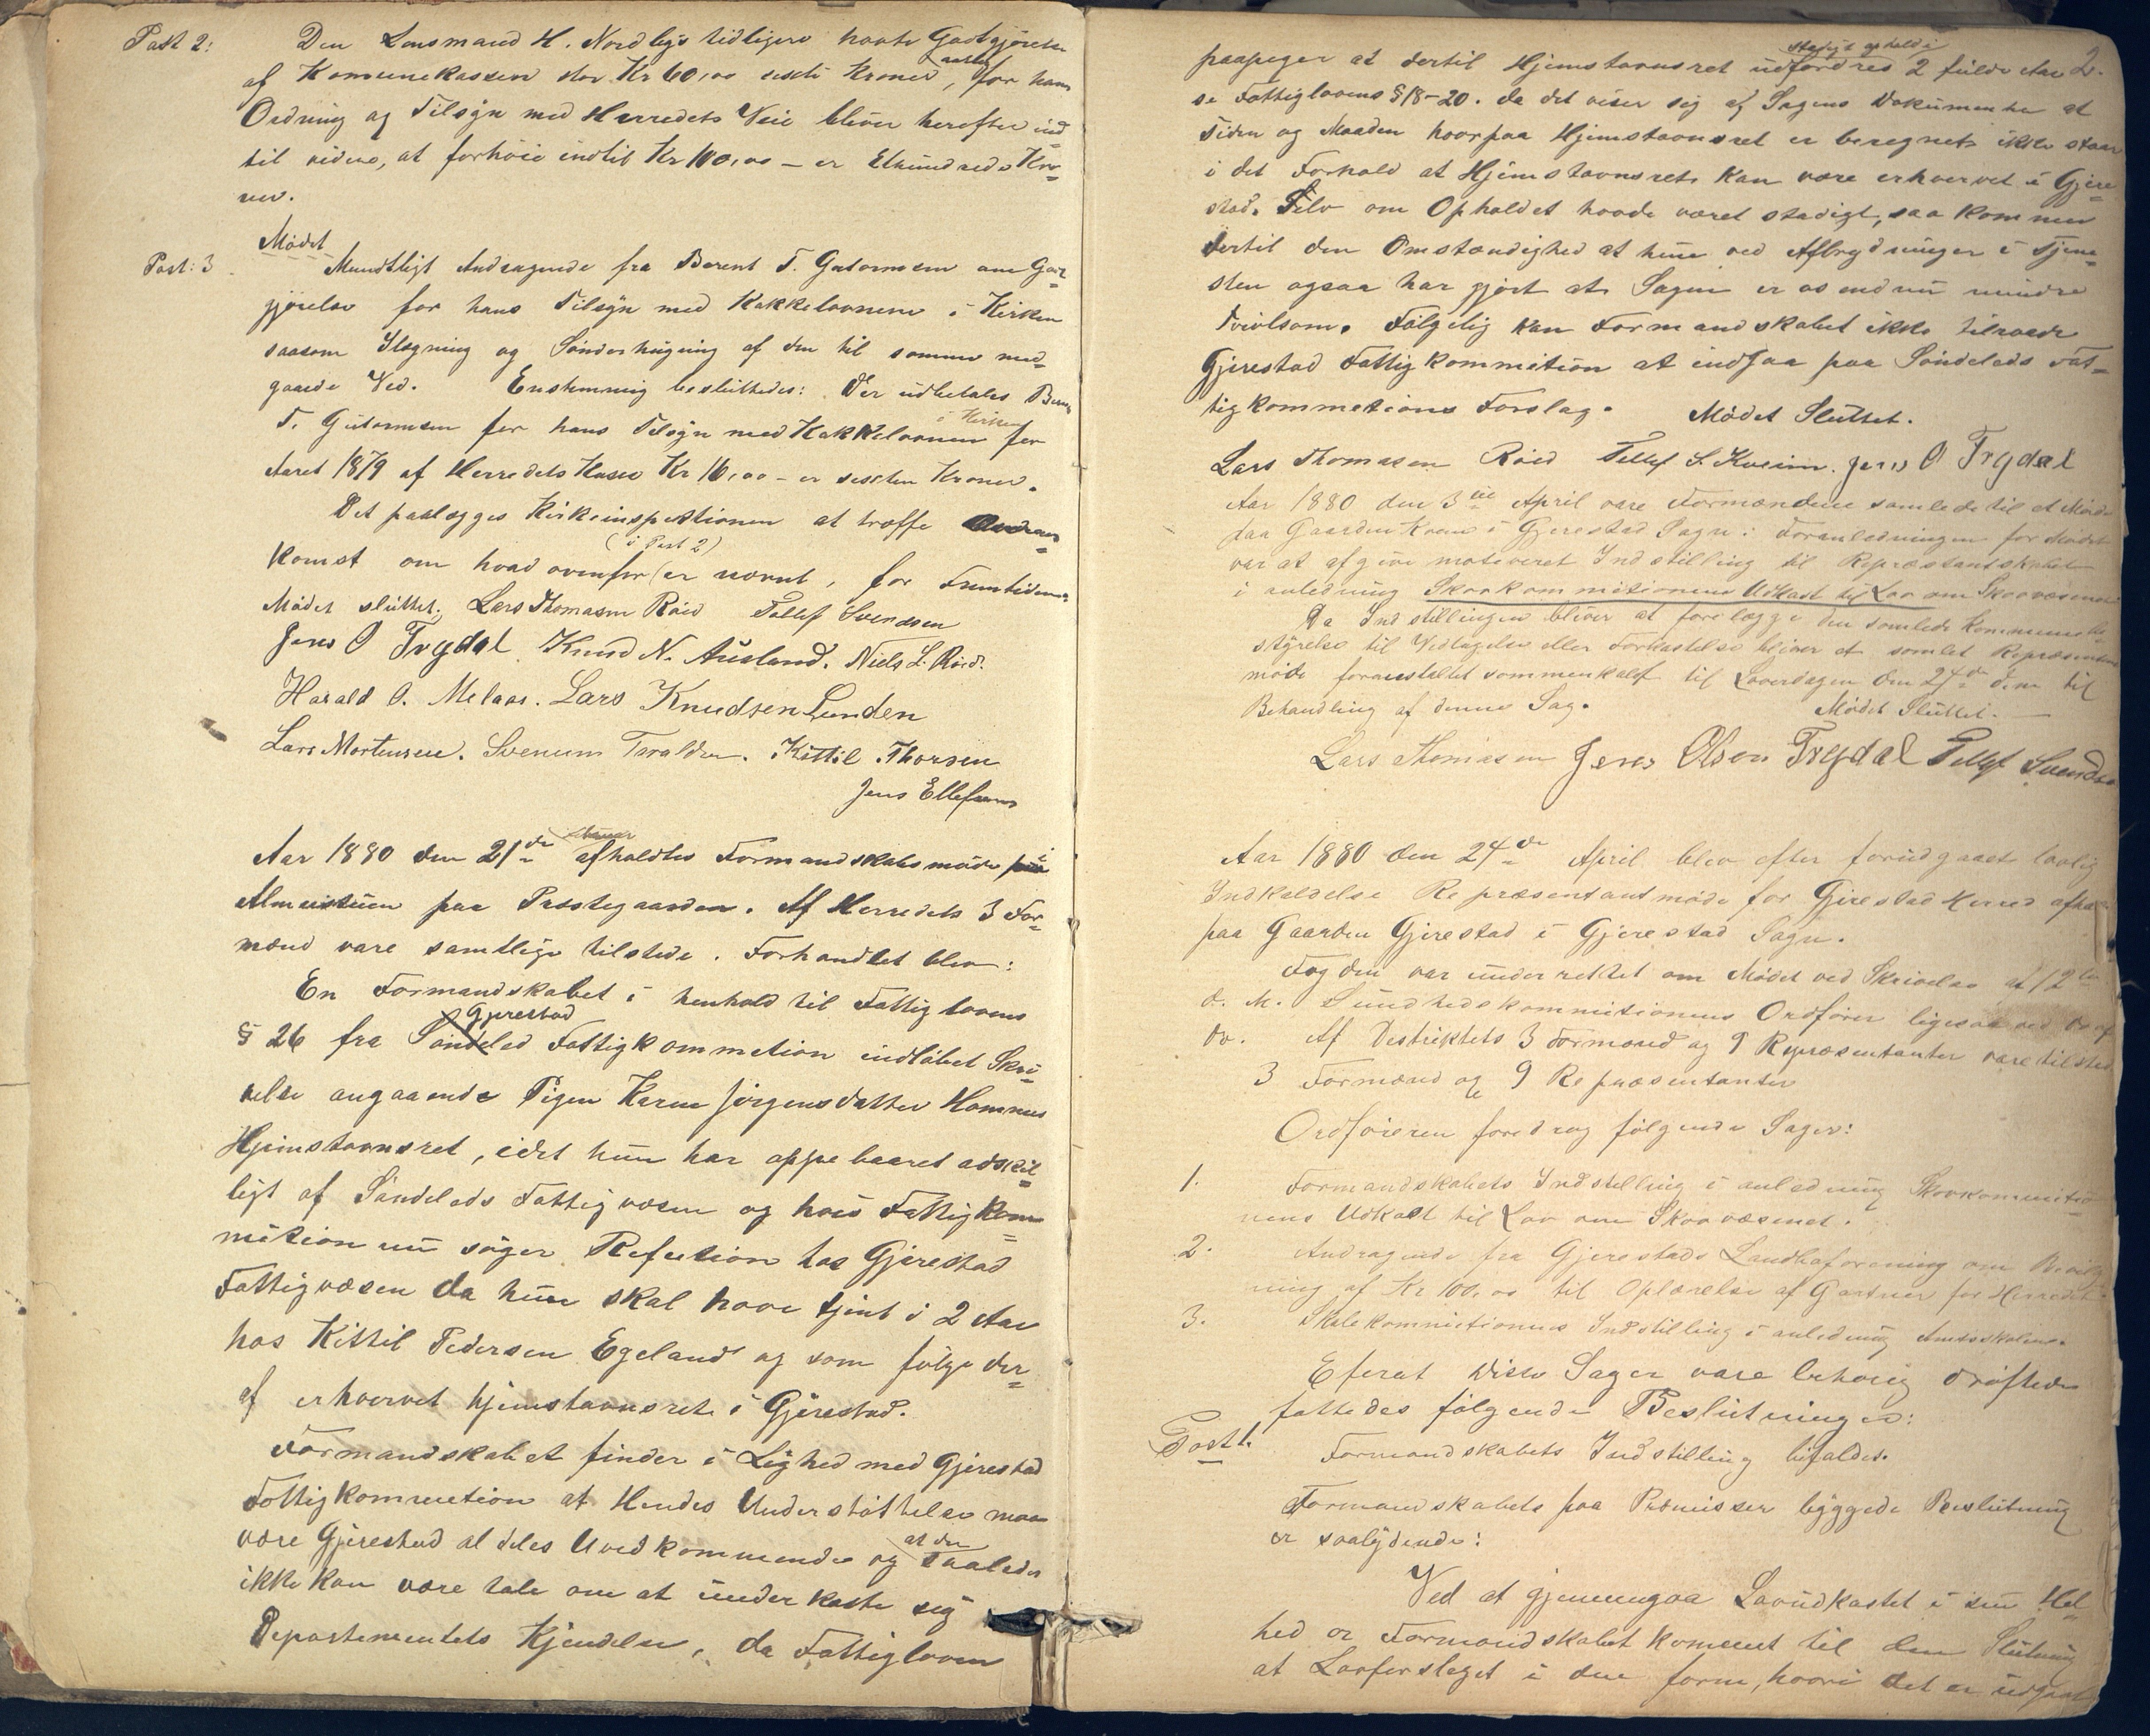 Post 2: Den Lensmand H. Nordlys tidligere havte Godtgjørelse
af Komunekassen stor Kr 60,00 sexti Kroner, aarlig for hans
Ordning og Tilsyn med Herredets Veie bliver herefter ind
til videre, at forhøie indtil Kr 100,00 – er Ethundrede Kro=
ner.
Mødet
Post: 3 Mundtligt Andragende fra Berent T. Gutormsen om God=
gjørelse for hans Tilsyn med Kakkelovnene i Kirken
saasom Ilægning og Sønderhugning af den til samme med=
gaaede Ved. Enstemmig besluttedes: Der udbetales Bernt
T. Gutormsen for hans Tilsyn med Kakkelovnene i Kirken for
Aaret 1879 af Herredets Kasse Kr 16,00 – er sexten Kroner.
Det paalægges Kirkeinspektionen at træffe
komst om hvad ovenfor (i Post 2) er nævnt, for Fremtiden.
Mødet sluttet. Lars Thomasen Røed Tellef Svendsen
Jens O Trydal Knud N. Ausland. Niels L. Røed.
Harald O. Melaas. Lars Knudsen Lunden
Lars Mortensen. Svenum Taraldsen. Kittil Thorsen
Jens Ellefsen
Aar 1880 den 21de afholdtes Formandskabsmøde i
Almeistuen paa Præstegaarden. Af Herredets 3 For=
mænd vare samtlige tilstede. Forhandlet blev:
En Formandskabet i henhold til Fattiglovens
§ 26 fra Gjerestad Fattigkommetion indløbet Skri=
velse angaaende Pigen Karen Jørgensdatter Hommes
Hjemstavnsret, idet hun har oppebaaret adskil=
ligt af Søndeleds Fattigvæsen og hvis Fattigkom=
mition nu søger Refution hos Gjerestad
Fattigvæsen da hun skal have tjent i 2 Aar
hos Kittil Pedersen Egeland og som følge der=
af erhvervet hjemstavnsret i Gjerestad.
Formandskabet finder i Lighed med Gjerestad
Fattigkommetion at Hendes Understøttelse maa
være Gjerestad aldeles Uvedkommende og at der saaledes
ikke kan være tale om at underkaste sig
Departementets Kjendelse, da Fattigloven
2.
paapeger at dertil Hjemstavnsret udfordres stadigt ophold i 2 fulde Aar
se Fattiglovens § 18-20. da det viser sig af Sagens Dokumenter at
Tiden og Maaden hvorpaa Hjemstavnsret er beregnet ikke staar
i det Forhold at Hjemstavnsret kan være erhvervet i Gjere=
stad. Selv om Opholdet havde været stadigt, saa kommer
dertil den Omstændighed at hun ved Afbrydninger i Tjene=
sten ogsaa har gjort at Sagen er os endnu mindre
tvivlsom. Følgelig kan Formandskabet ikke tilraade
Gjerestad Fattigkommition at indgaa paa Søndeleds Fat=
tigkommetions Forslag. Mødet Sluttet.
Lars Thomasen Røed Tellef S. Kveim. Jens O Trydal
Aar 1880 den 3die April vare Formændene samlede til et Møde
paa Gaarden Kveim i Gjerestad Sogn. Foranledningen for Mødet
var at afgive motiveret Indstilling til Repræsentantskabet
i anledning Skovkommitionens Udkast til Lov om Skovvæsenet
Da Indstillingen bliver at forelægge den samlede Kommunebe
styrelse til Vedtagelse eller Forkastelse bliver et samlet Repræsentant
møde foranstaltet sammenkaldt til Løverdagen den 24de dem til
Behandling af denne Sag. Mødet Sluttet.
Lars Thomasen Jens Olsen Trydal Tellef Svendsen
Aar 1880 den 24de April blev efter forudgaaet lovlig
Indkaldelse Repræsentantmøde for Gjerestad Herred afholdt
paa Gaarden Gjerestad i Gjerestad Sogn.
Fogden var underrettet om Mødet ved Skrivelse af 12te
d. M. Sundhedskommitionens Ordfører ligesaa ved
Af Destriktets 3 Formænd og 9 Repræsentanter vare tilstede
3 Formænd og 9 Repræsentanter
Ordføreren foredrag følgende Sager:
1. Formandskabets Indstilling i anledning Skovkommitio=
nens Udkast til Lov om Skovvæsenet.
2. Andragende fra Gjerestads Landboforening om Bevilg=
ning af Kr 100,00 til Oplærelse af Gartner for Herredet.
3. Skolekommitionens Indstilling i anledning Amtsskolen.
Eferat disse Sager vare behørig drøftede
fattedes følgende Beslutninger:
Post 1. Formandskabets Indstilling bifaldes.
Formandskabets paa Præmisser byggede Beslutning
er saalydende:
Ved at gjennemgaa Lovudkastet i sin Hel=
hed er Formandskabet kommet til den Slutning
at Lovforslaget i den form, hvori det er udgaaet